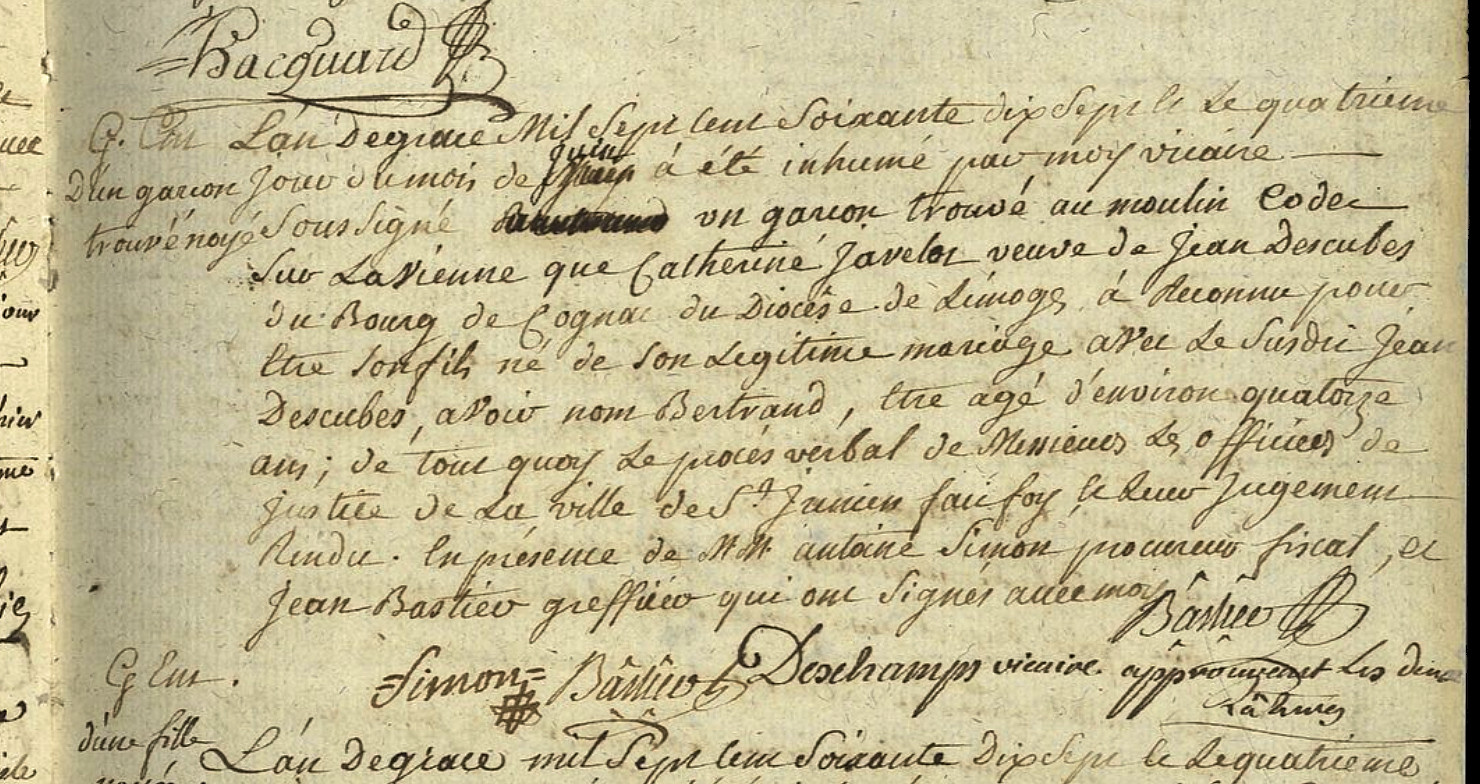 Bacquard
G. Em L'an De grace Mil Sept Cent Soixante dix Sept & Le quatrieme
D'un garcon Jour du mois de Juin à été inhumé par moy vicaire
trouvé noyé Soussigné un garcon trouvé au moulin Codet
Sur La Vienne que Catherine Javelot veuve de Jean Descubes
du Bourg de Cognac du Diocése de Limoges à Reconnu pour
Etre Son fils né de Son Legitime mariage avec Le Susdit Jean
Descubes, avoir nom Bertrand, Etre agé d'environ quatorze
ans; de tout quoy Le procés verbal de Messieurs Les officiers de
justice de La ville de St Junien fait foy & Leur Jugement
Rendu. En présence de MM. antoine Simon procureur fiscal, et
Jean Bastier greffier qui ont Signés avec moy
Bâstier
G Em. Simon Bâstier Deschamps vicaire. approuvant Les deux
râtures
d'une fille
L'an De grace mil Sept Cent Soixante Dix Sept & Le quatrieme